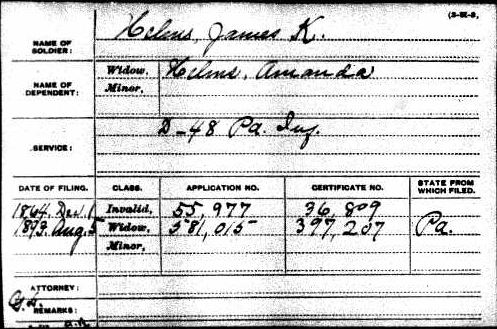 (3-M-8,
NAME OF SOLDIER: Helms, James K.
NAME OF DEPENDENT: Widow, Helms, Amanda
Minor,
SERVICE: D-48 Pa. Inf.
DATE OF FILING. CLASS. APPLICATION NO. CERTIFICATE NO. STATE FROM WHICH FILED.
1864. Dec. 1 Invalid, 55,977 36,809
1893. Aug. 5 Widow, 581,015 397,207 Pa.
Minor,
ATTORNEY:
REMARKS: